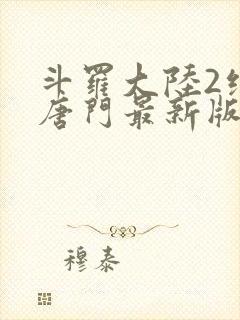 斗羅大陸2
唐門最新版
穆泰